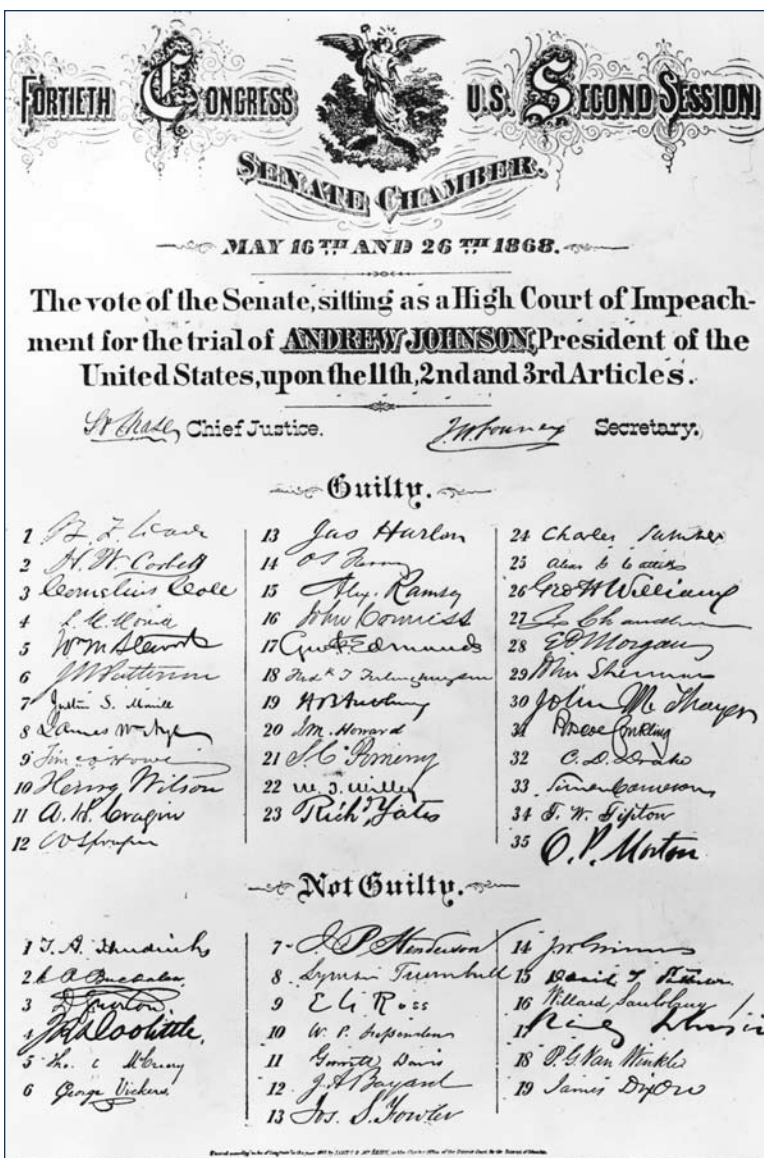 FORTIETH CONGRESS U.S. SECOND SESSION
SENATE CHAMBER.
MAY 16TH AND 26TH 1868.
The vote of the Senate, sitting as a High Court of Impeach-
ment for the trial of ANDREW JOHNSON, President of the
United States, upon the 11th, 2nd and 3rd Articles.
S P Chase, Chief Justice.
J W Forney Secretary.
Guilty.
1 B. F. Wade
2 H. W. Corbett
3 Cornelius Cole
4 L. M. Morrill
5 Wm M Stewart
6 J W Patterson
7 Justin S. Morrill
8 James W Nye
9 Tim O Howe
10 Henry Wilson
11 A. H. Cragin
12 W Sprague
13 Jas Harlan
14 O S Ferry
15 Alex. Ramsey
16 John Conness
17 Geo F Edmunds
18 Fredk T Frelinghuysen
19 H B Anthony
20 J M. Howard
21 S. C. Pomeroy
22 W. T. Willey
23 Richd Yates
24 Charles Sumner
25
26 Geo H Williams
27 Z Chandler
28 E D Morgan
29 John Sherman
30 John M Thayer
31 Roscoe Conkling
32 C. D. Drake
33 Simon Cameron
34 T. W. Tipton
35 O. P. Morton
Not Guilty.
1 T. A. Hendricks
2 C R Buckalew
3 D Norton
4 J R Doolittle,
5 Tho. C McCreery
6 George Vickers
7 J B Henderson
8 Lyman Trumbull
9 E G Ross
10 W. P. Fessenden
11 Garrett Davis
12 J. A Bayard
13 Jos. S. Fowler
14 J W Grimes
15 David T Patterson
16 Willard Saulsbury
17 Johnson
18 P. G. Van Winkle
19 James Dixon